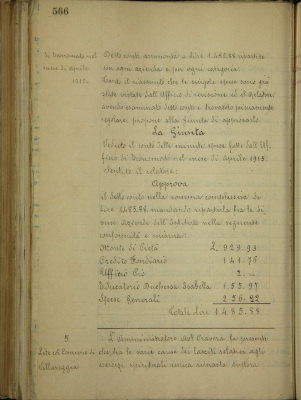 566
di Economato nel
mese di Aprile
1913.
Detto conto ammonta a Lire 1.483.88 ripartite
per ogni azienda e per ogni categoria.
che le singole spese sono già
state vistate dall'Ufficio di revisione ed il Relatore
avendo esaminato detto conto e trovatolo pienamente
regolare propone alla Giunta di approvarlo.
La Giunta
Veduto il conto delle minute spese fatte dall'Uf-
ficio di Economato nel mese di Aprile 1913.
Sentito il relatore:
Approva
il detto conto nella somma complessiva di
Lire 1483.88 mandando ripartirla fra le di-
verse aziende dell'Istituto nella seguente
conformità e misura:
Monte di Pietà L. 929.93
Credito Fondiario 141.76
Ufficio Pio 2.—
Educatorio Duchessa Isabella 153.97
Spese Generali 256.22
Totale Lire 1483.88
5.
Lite col Comune di
Villareggia
L'Amministratore Avv. Cravera fa presente
che, fra le varie cause dei lasciti relativi agli
esercizi spirituali